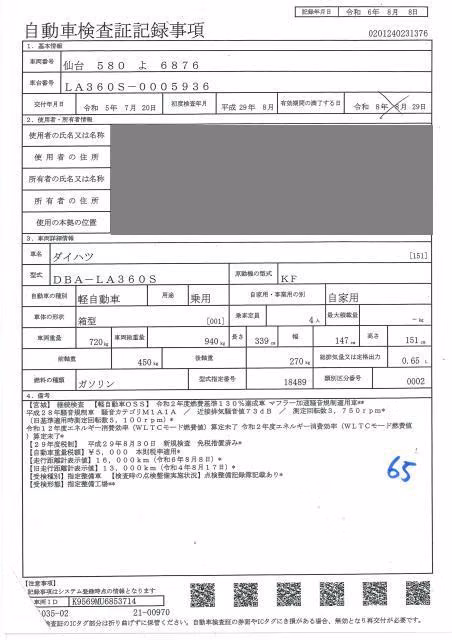 記録年月日 令和 6年 8月 8日
自動車検査証記録事項
0201240231376
1. 基本情報
車両番号 仙台 580 よ 6876
車台番号 LA360S-0005936
交付年月日 令和 5年 7月 20日 初度検査年月 平成 29年 8月 有効期間の満了する日 令和 8年 8月 29日
2. 使用者・所有者情報
使用者の氏名又は名称
使用者の住所
所有者の氏名又は名称
所有者の住所
使用の本拠の位置
3. 車両詳細情報
車名 ダイハツ [151]
型式 DBA-LA360S 原動機の型式 KF
自動車の種別 軽自動車 用途 乗用 自家用・事業用の別 自家用
車体の形状 箱型 [001] 乗車定員 4人 最大積載量 -kg
車両重量 720kg 車両総重量 940kg 長さ 339cm 幅 147cm 高さ 151cm
前軸重 450kg 後軸重 270kg 総排気量又は定格出力 0.65 L
燃料の種類 ガソリン 型式指定番号 18489 類別区分番号 0002
4. 備考
【宮城】 継続検査 【軽自動車OSS】 令和2年度燃費基準130%達成車 マフラー加速騒音規制適用車**
平成28年騒音規制車 騒音カテゴリM1A1A / 近接排気騒音値73dB / 測定回転数3,750rpm*
(旧基準適用時測定回転数5,100rpm)*
令和12年度エネルギー消費効率(WLTCモード燃費値) 算定未了 令和2年度エネルギー消費効率(WLTCモード燃費値
) 算定未了*
【29年度税制】 平成29年8月30日 新規検査 免税措置済み*
【自動車重量税額】¥5,000 本則税率適用*
【走行距離計表示値】16,000km(令和6年8月8日)*
【旧走行距離計表示値】13,000km(令和4年8月17日)*
【受検種別】指定整備車 【検査時の点検整備実施状況】点検整備記録簿記載あり*
【受検形態】指定整備工場**
65
【注意事項】
記録事項はシステム登録時点の情報となります
車両ID K9569MU6853714
035-02 21-00970
検査証のICタグ部分は折り曲げずに保管ください。自動車検査証の券面やICタグにき損がある場合、無効となり再交付が必要です。